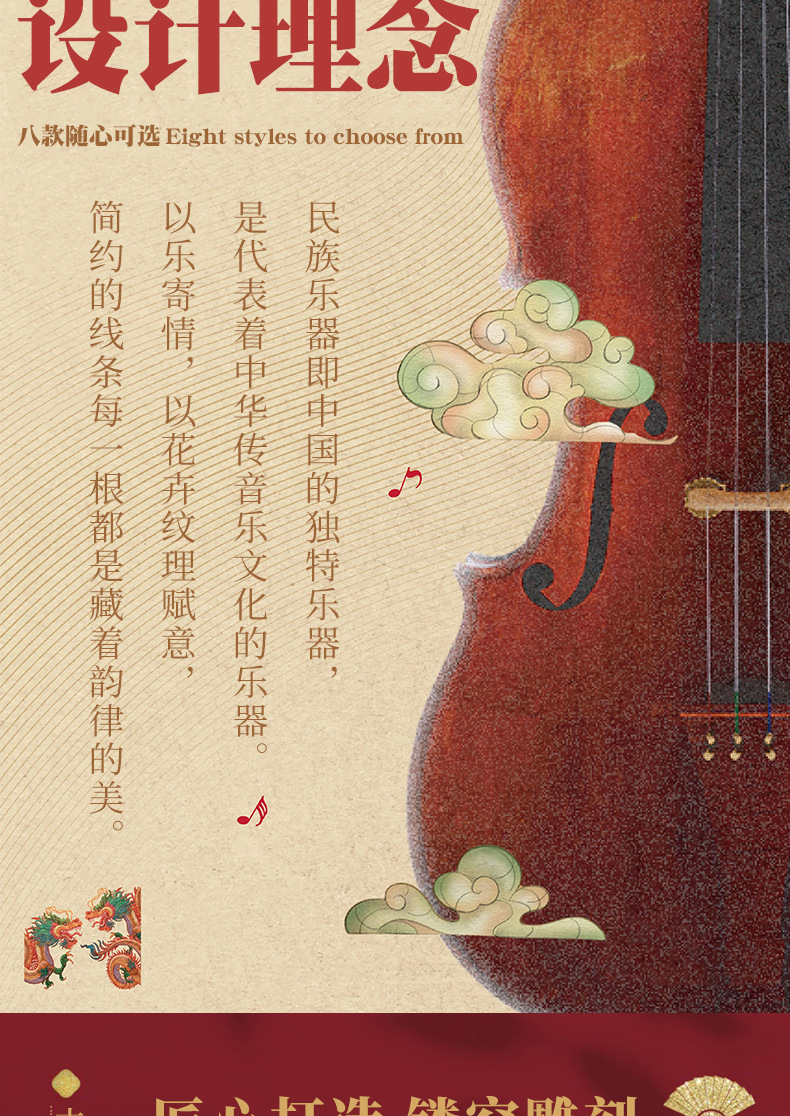 设计理念
八款随心可选 Eight styles to choose from
民族乐器即中国的独特乐器，
是代表着中华传音乐文化的乐器。
以乐寄情，以花卉纹理赋意，
简约的线条每一根都是藏着韵律的美。
匠心打造 镂空雕刻